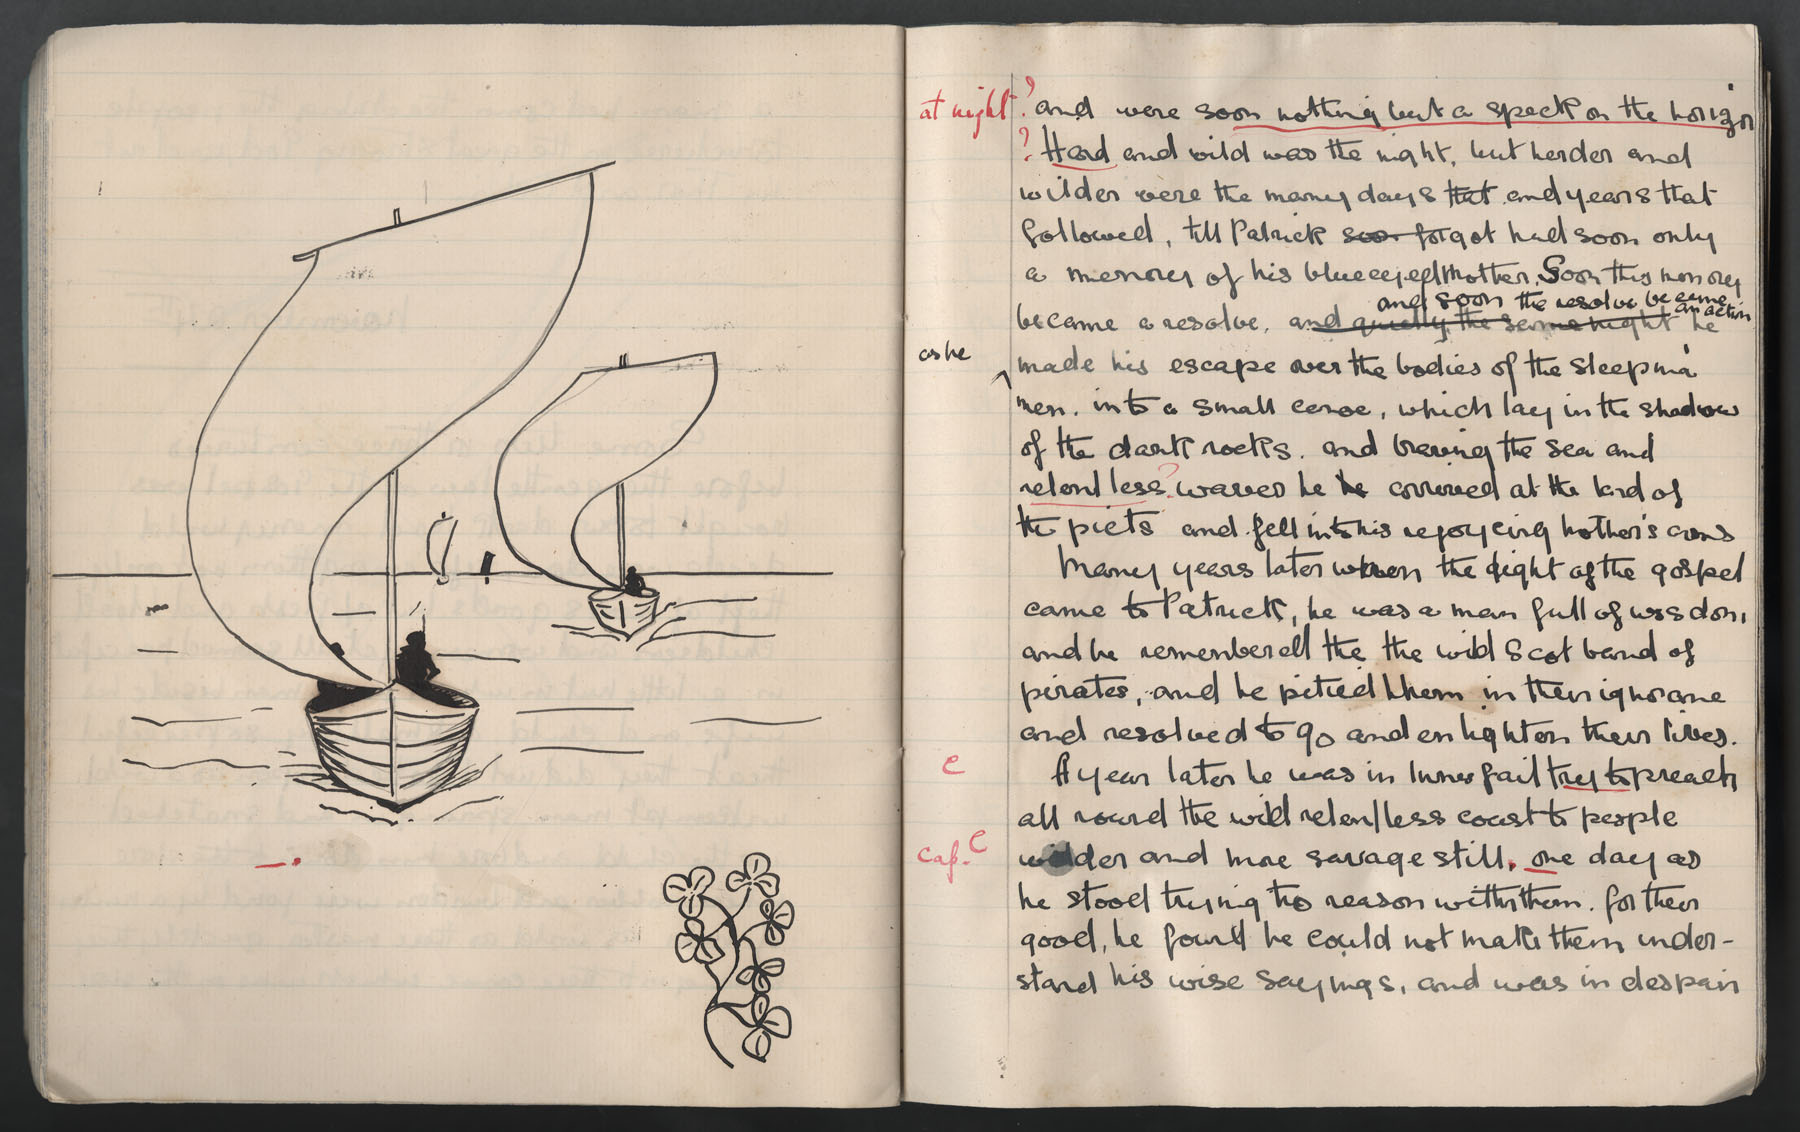 at night ? and were soon nothing but a speck on the horizon
? Hard and wild was the night, but harder and
wilder were the many days that and years that
followed, till Patrick soon forgot had soon only
a memory of his blueeyed mother. Soon this memory
and soon the resolve became an action
became a resolve, and quietly the same night he
as he
made his escape over the bodies of the sleeping
men. into a small canoe, which lay in the shadow
of the dark rocks. and braving the sea and
relentless? waves he he arrived at the land of
the picts and fell into his rejoycing mother's arms
Many years later when the light of the gospel
came to Patrick, he was a man full of wisdom,
and he remembered the the wild Scot band of
pirates, and he pitied them in their ignorance
and resolved to go and enlighten their lives.
e A year later he was in Innisfail try to preach
all round the wild relentless coast to people
cap. e wilder and more savage still. one day as
he stood trying to reason with them. for their
good, he found he could not make them under-
stand his wise sayings, and was in despair